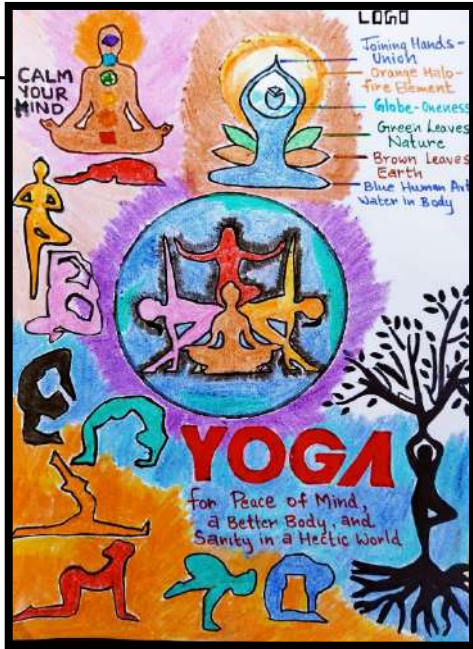 LOGO
CALM
YOUR
MIND
Joining Hands-
Union
Orange Halo-
fire Element
Globe-Oneness
Green Leaves
Nature
Brown Leaves
Earth
Blue Human
Water in Body
YOGA
for Peace of Mind,
a Better Body, and
Sanity in a Hectic World